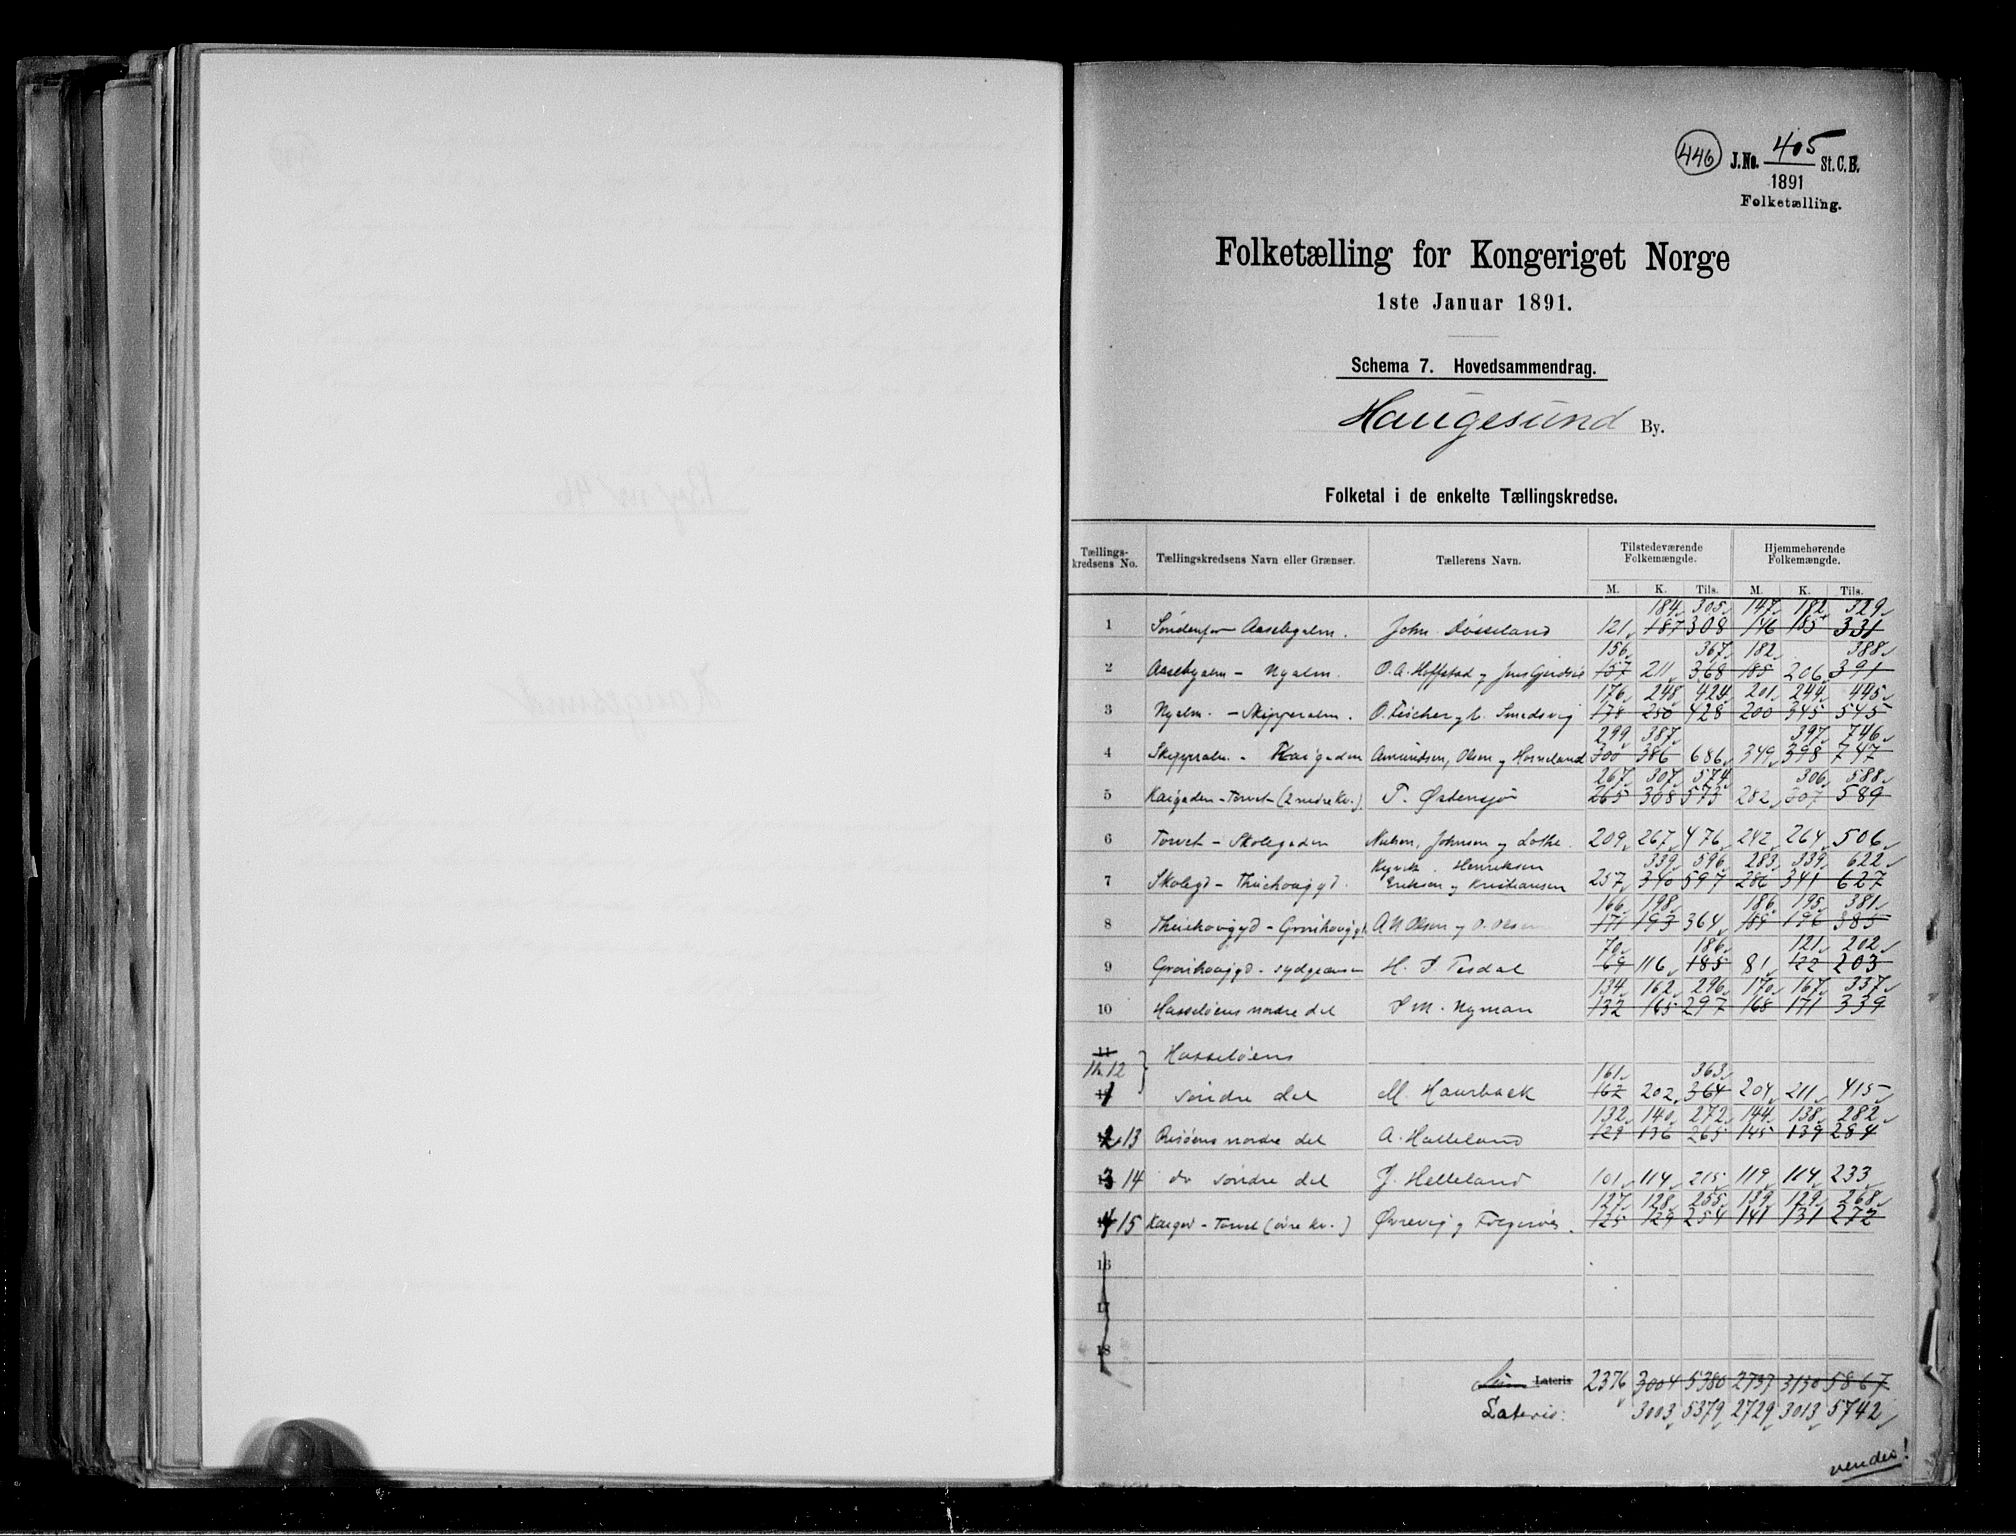 446 J.No. 405 St.C.B.
1891
Folketælling.
Folketælling for Kongeriget Norge
1ste Januar 1891.
Schema 7. Hovedsammendrag.
Haugesund By.
Folketal i de enkelte Tællingskredse.
Tællings-kredsens No. Tællingskredsens Navn eller Grænser. Tællerens Navn. Tilstedeværende Folkemængde. Hjemmehørende Folkemængde.
M. K. Tils. M. K. Tils.
184 305 147 182 329
1 Søndenfor Aasebygalm. John Døsseland 121 187 308 146 185 331
156 367 182 388
2 Aasebyalm - Nyalm. O. A. Hoffstad og Jens 157 211 368 185 206 391
176 248 424 201 244 445
3 Nyalm. - Skipperalm. O. Fischer og L. Smedsvig 178 250 428 200 345 545
299 387 397 746
4 Skipperalm. - Kaigaden Amundsen, Olsen og Horneland 300 386 686 349 398 747
267 307 574 306 588
5 Kaigaden - Torvet (2 nedre Kv.) T. Østensjø 265 308 573 282 307 589
6 Torvet - Skolegaden Nielsen, Johnsen og Lothe. 209 267 476 242 264 506
339 596 283 339 622
Kyvik. Henriksen
7 Skolegd - Eriksen og Kristiansen 257 340 597 286 341 627
166 198 186 195 381
8 A N Olsen og O. Olsen 171 193 364 189 196 385
70 186 121 202
9 H. S. Tesdal 69 116 185 81 122 203
134 162 296 170 167 337
10 Hasseløens nordre del S M. Nyman 132 165 297 168 171 339
11 Hasseløens
11.12 161 363
søndre del M. Haurback 162 202 364 204 211 415
132 140 272 144 138 282
13 Risøens nordre del A. Helleland 129 136 265 145 139 284
14 do søndre del J. Helleland 101 114 215 119 114 233
127 128 255 139 129 268
15 Kaigad - Torvet (øvre kv.) Øvrevig og 125 129 254 141 131 272
16
17
18
Lateris 2376 3004 5380 2737 3130 5867
Lateris: 3003 5379 2729 3013 5742
vendes!